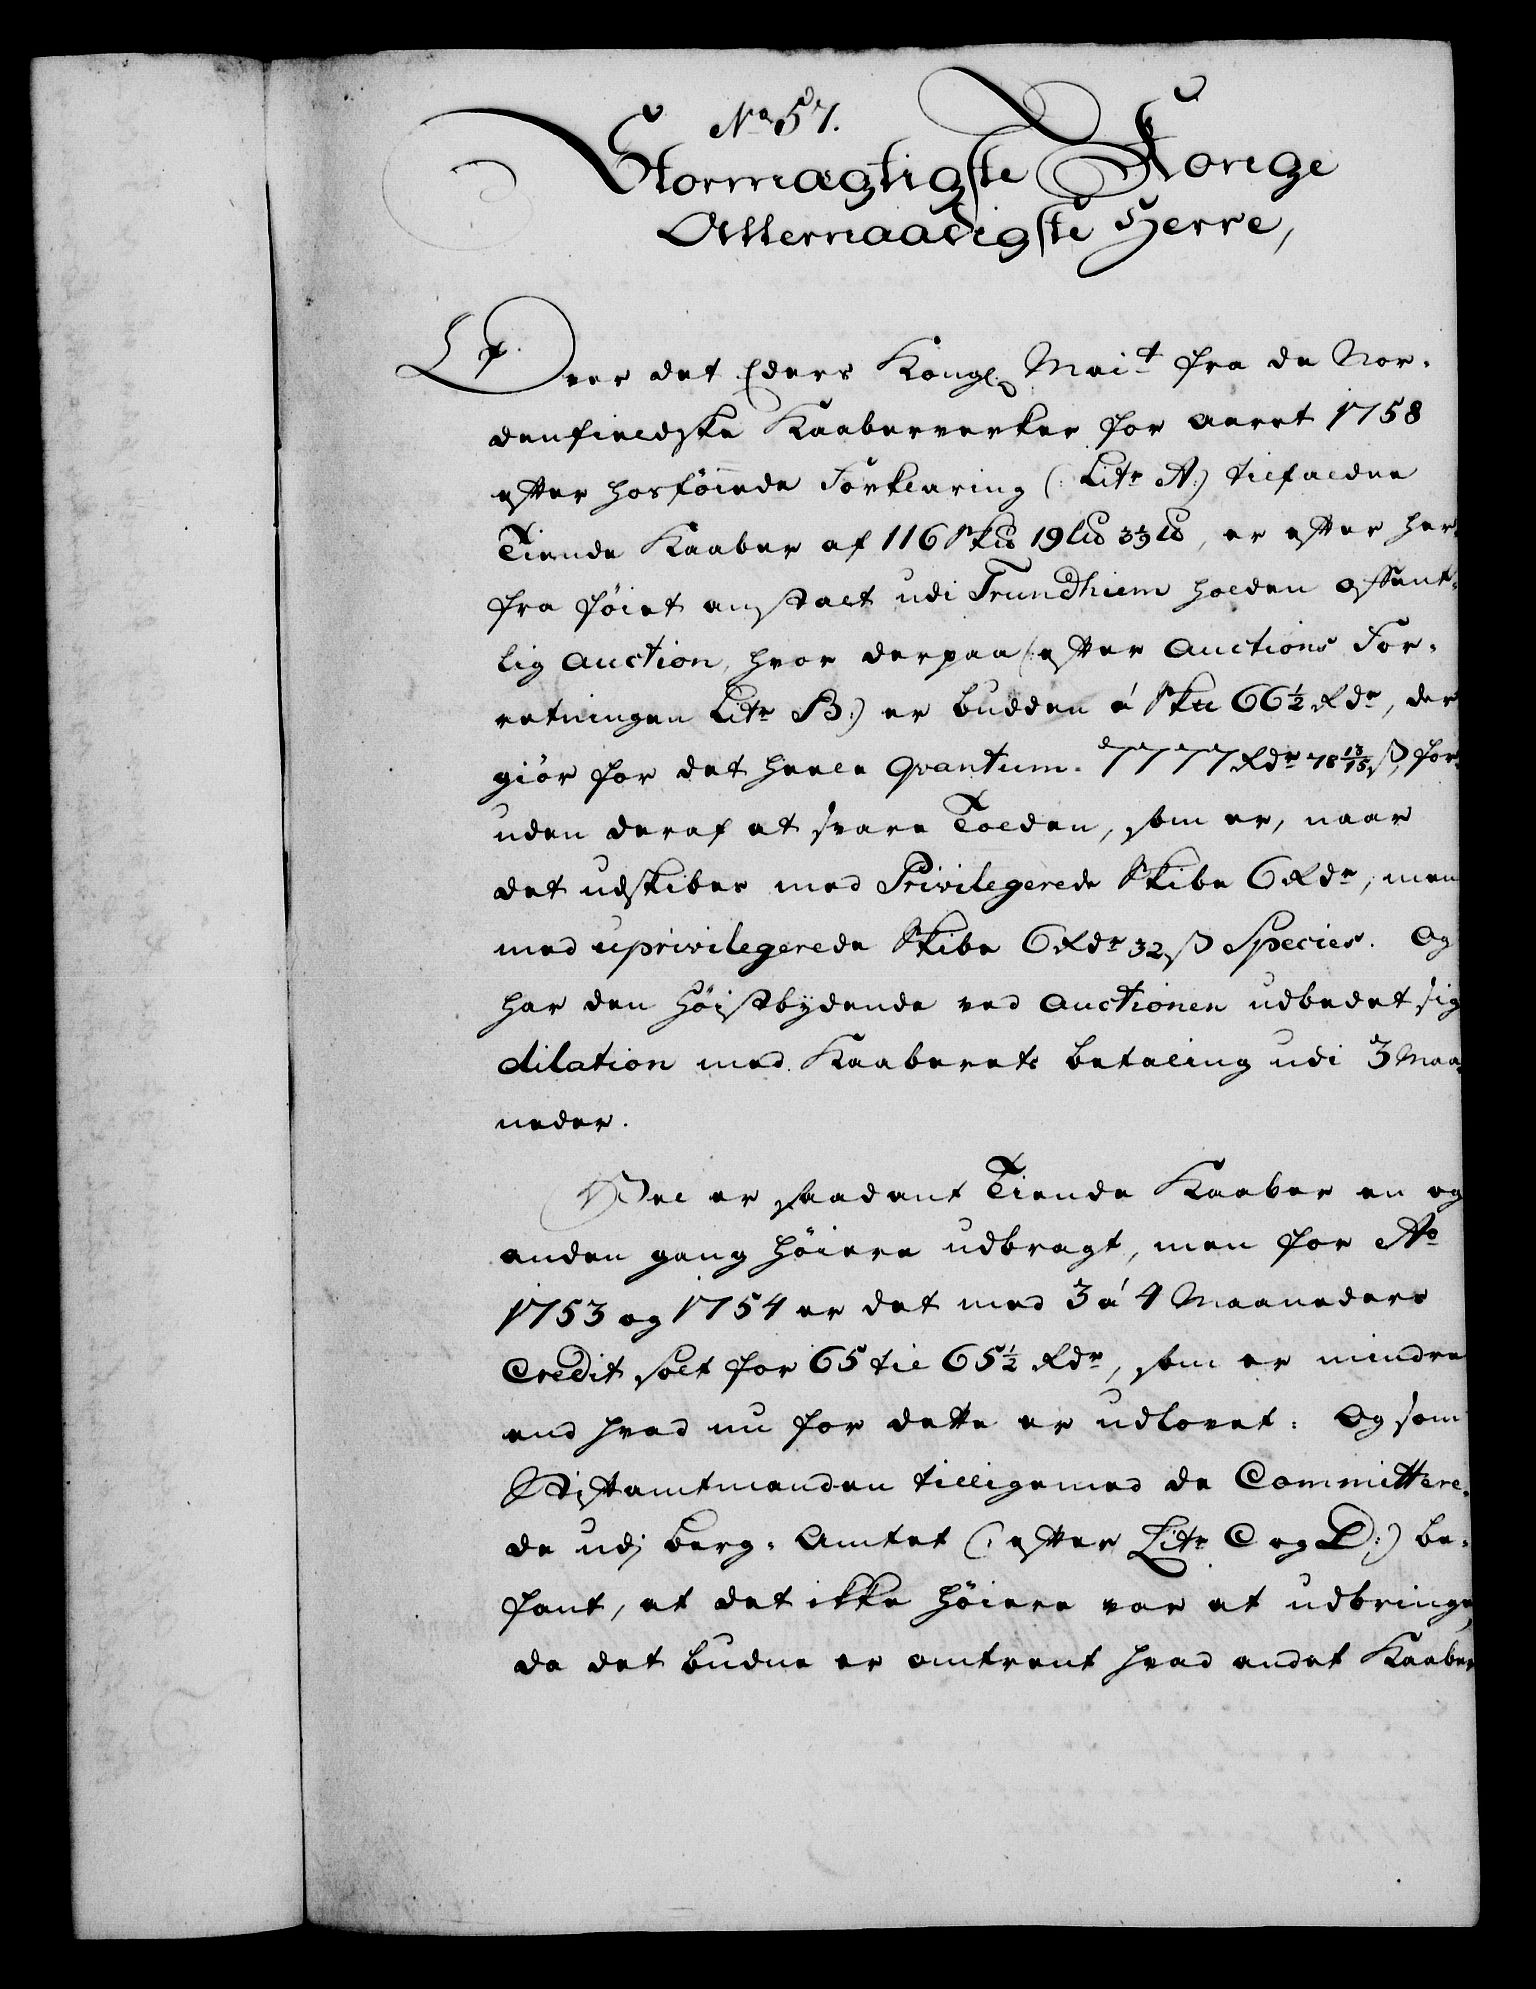 No 57.
Stormægtigste Konge
Allernaadigste Herre,
Over det Eders Kongl. Mait fra de Nor-
denfieldske Kaaberverker for aaret 1758
efter hosføiede Forklaring (: Litr A:) tilfaldne
Tiende Kaaber af 116 Sk℔ 19 L℔ 3 3/5 ℔, er efter her
fra føiet anstalt udi Trundhiem holden offent-
lig Auction, hvor derpaa (: efter Auctions For-
retningen Litr B:) er budden á Sk℔ 66½ Rdr, der
giør for det heele Qvantum. 7777 Rdr 78 13/15 ß, for-
uden deraf at svare Tolden, som er, naar
det udskibes med Privilegerede Skibe 6 Rdr, men
med uprivilegerede Skibe 6 Rdr 32 ß Species. Og
har den Høistbydende ved Auctionen udbedet sig
dilation med Kaaberets betaling udi 3 Maa-
neder.
Vel er saadant Tiende Kaaber en og
anden gang høiere udbragt, men for Ao
1753 og 1754 er det med 3 á 4 Maaneders
Credit solt for 65 til 65½ Rdr, som er mindre
end hvad nu for dette er udlovet: Og som
Stiftamtmanden tilligemed de Committere-
de udj Berg-Amtet (: efter Litr C og D:) be-
fant, at det ikke høiere var at udbringe,
da det budne er omtrent hvad andet Kaaber